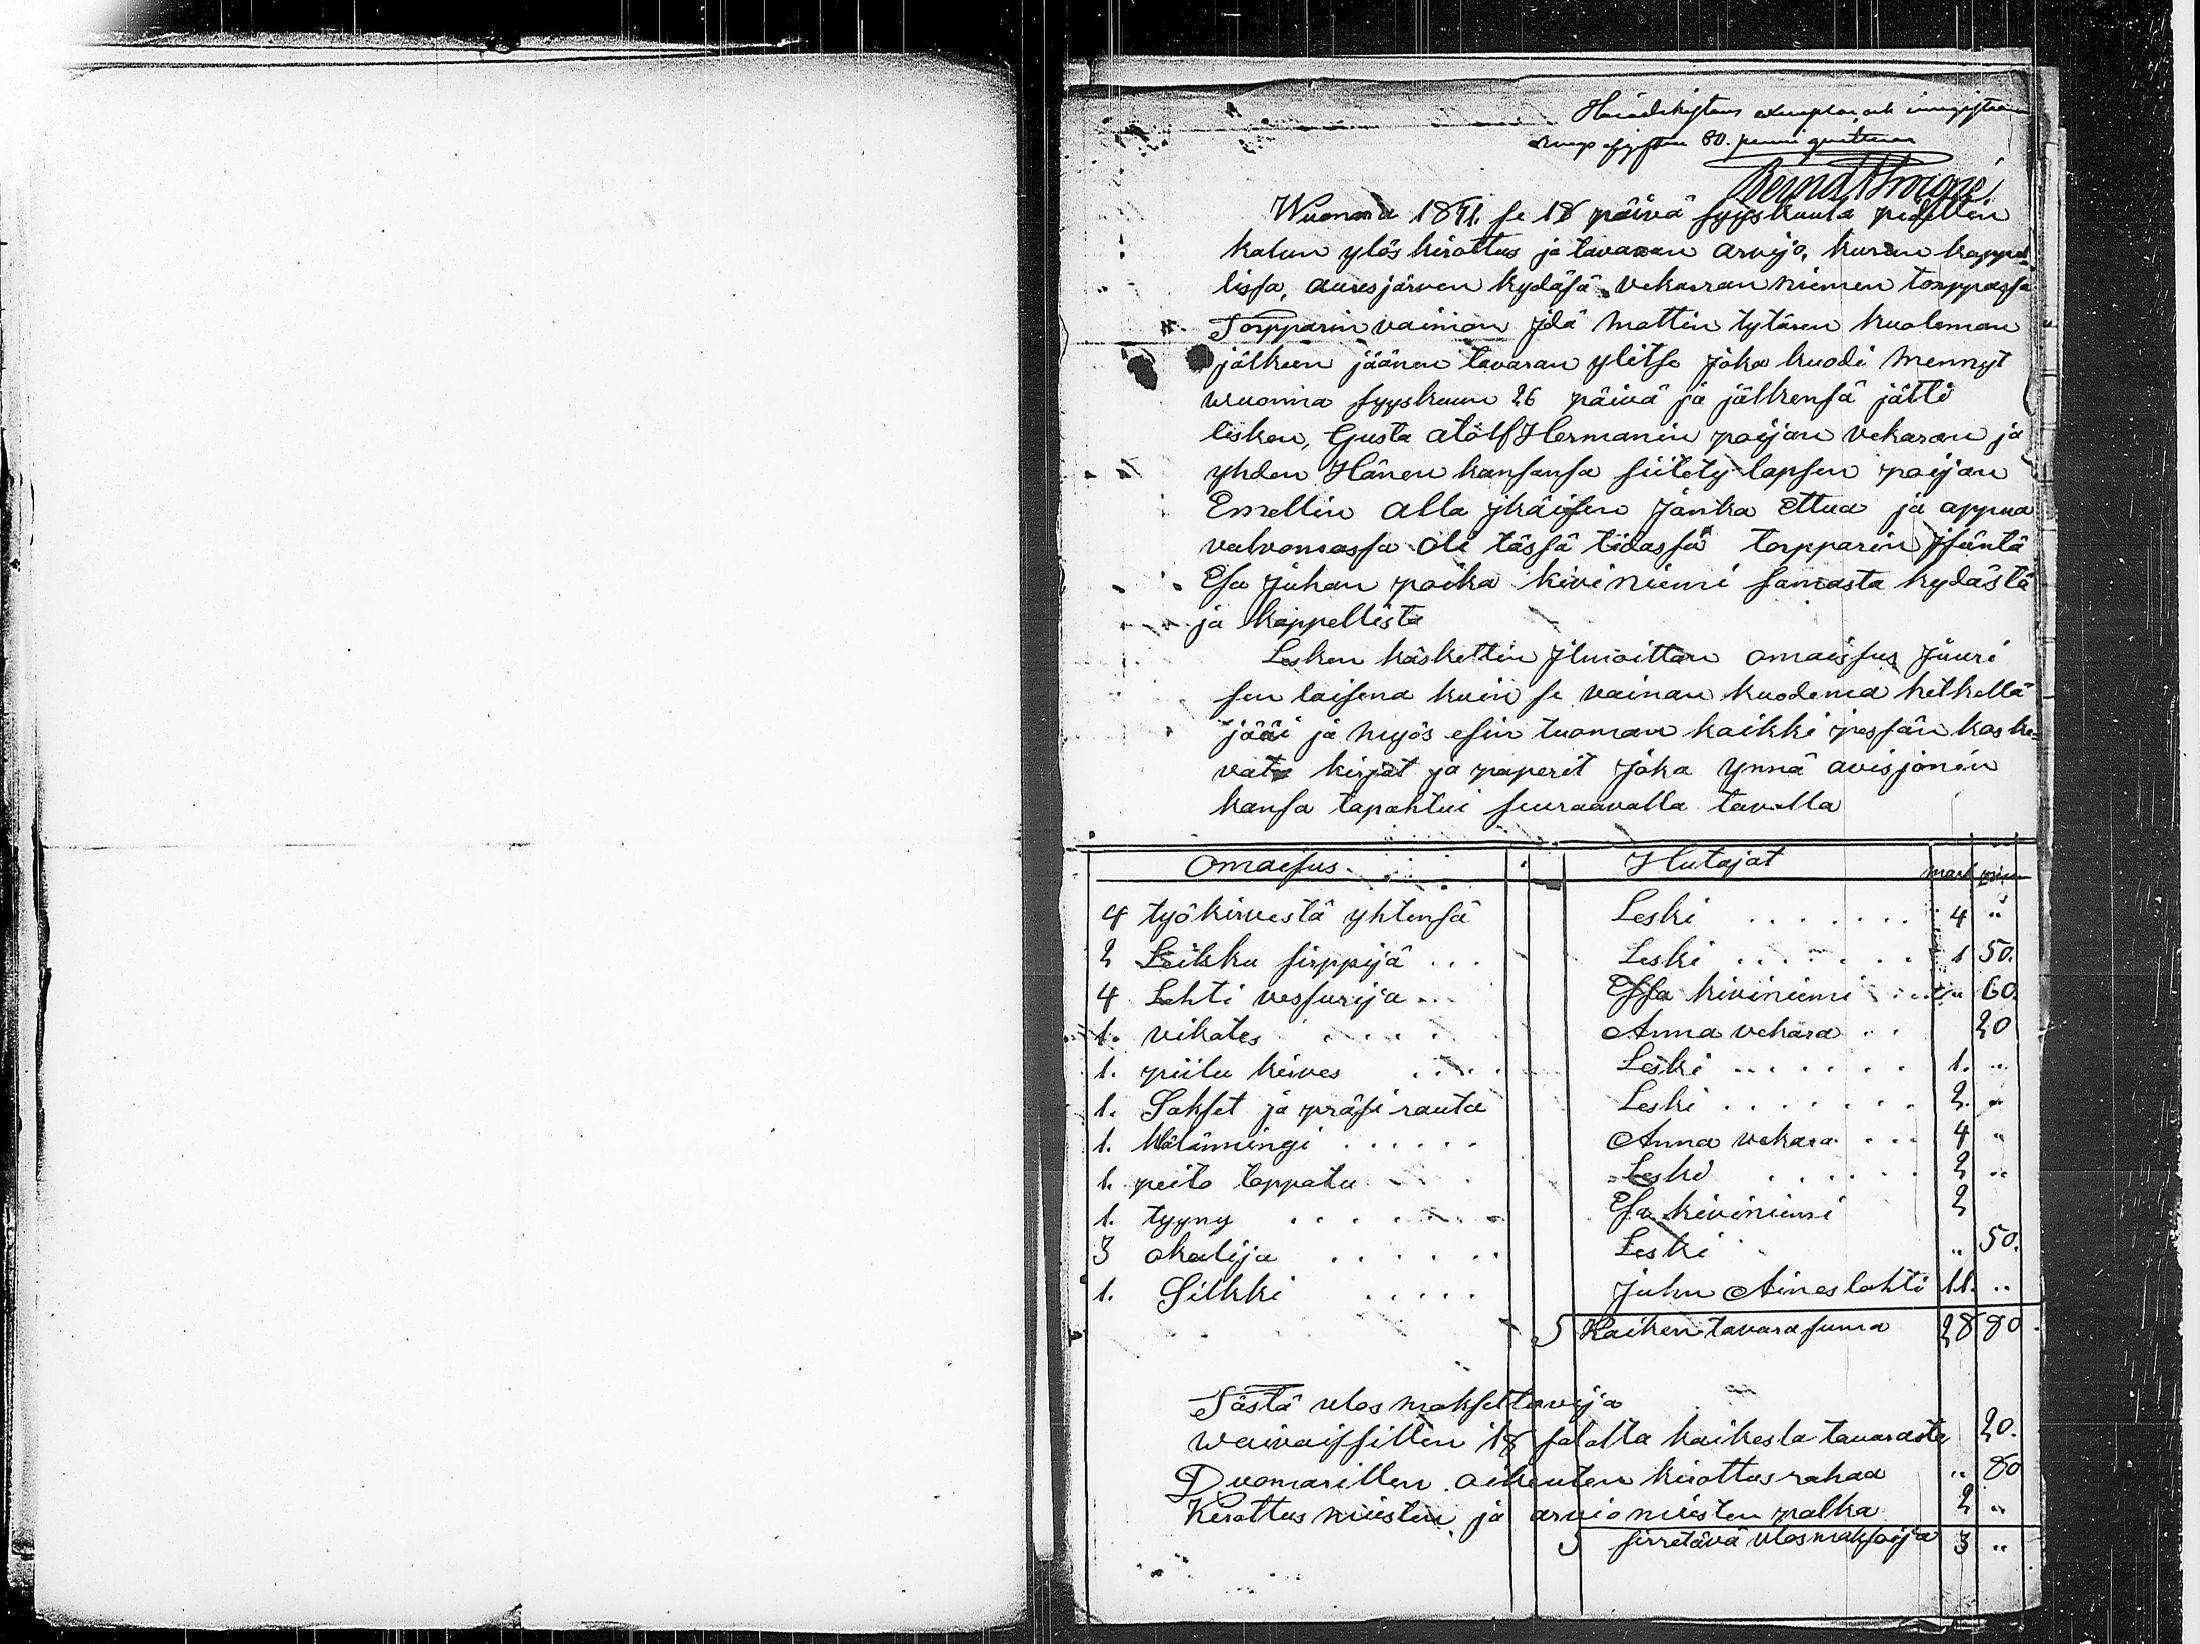 80. penni
Wuonna 1891. se 18 päivä syyskuuta pidettin
kalun ylös kirottus ja tavaran arvijo, kurun kappe-
lissa, aurejärven kyläsä vekarran niemen torppassa
Torpparin vaimon Jdä mattin tytären kuoleman
jälkeen jäänen tavaran ylitse joka kuoli mennyt
wuonna syyskuun 26 päivä ja jälkensä jätti
lesken, Gusta atolf Hermanin poijan vekaran ja
yhden Hänen kansansa siitety lapsen poijan
Emellin alla jkäisen Jonka Ettua ja appua
valvomassa oli tässä tilassa torpparin Jsäntä
Esa Juhan poika kiviniemi samasta kylästä
ja kappellista
Lesken käskettin Jlmoittan omaisus Juuri
sen laisena kuin se vainan kuolema hetkellä
jääi ja myös esin tuoman kaikki pessän koske-
vat kirjat ja paperit joka ynnä avisjonin
kansa tapahtui seuraavalla tavalla
Omaisus Hutajat mark peni
4 työkirvestä yhtensä Leski . . . . . . . 4 "
2 Leikku sirppijä . . . Leski . . . . . . . 1 50.
4 Lehti vessurija . . . Essa kiviniemi . . . " 60.
1. vikates . . . . . Anna vekara . . 20
1. piilu kirves . . . . Leski . . . . . . . 1. "
1. Sakset ja präsi rauta Leski . . . . . . . 2. "
1. Wälämingi . . . . . . Anna vekara . . . 4 "
1. peito toppatu . . . Leski . . . . . 2 "
1. tyyny . . . . . . Esa kiviniemi 2
3 akulija . . . . . . Leski " 50.
1. Silkki . . . . . Juhu Aineslahti 11. "
S Kaiken tavara suma 28 80
Tästä ulos maksettavija
waivaissillen 1/8 salalta kaikesta tavarasta 20.
Duomarillen oikeuten kirottus rahaa " 80
Kirottus miesten ja arviomiesten palka 2 "
S sirretävä ulosmaksoija 3 "